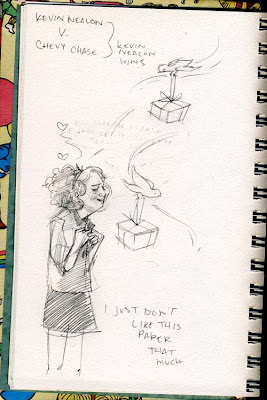 KEVIN NEALON
V.
CHEVY CHASE
KEVIN
NEALON
WINS
I JUST DON'T
LIKE THIS
PAPER
THAT
MUCH